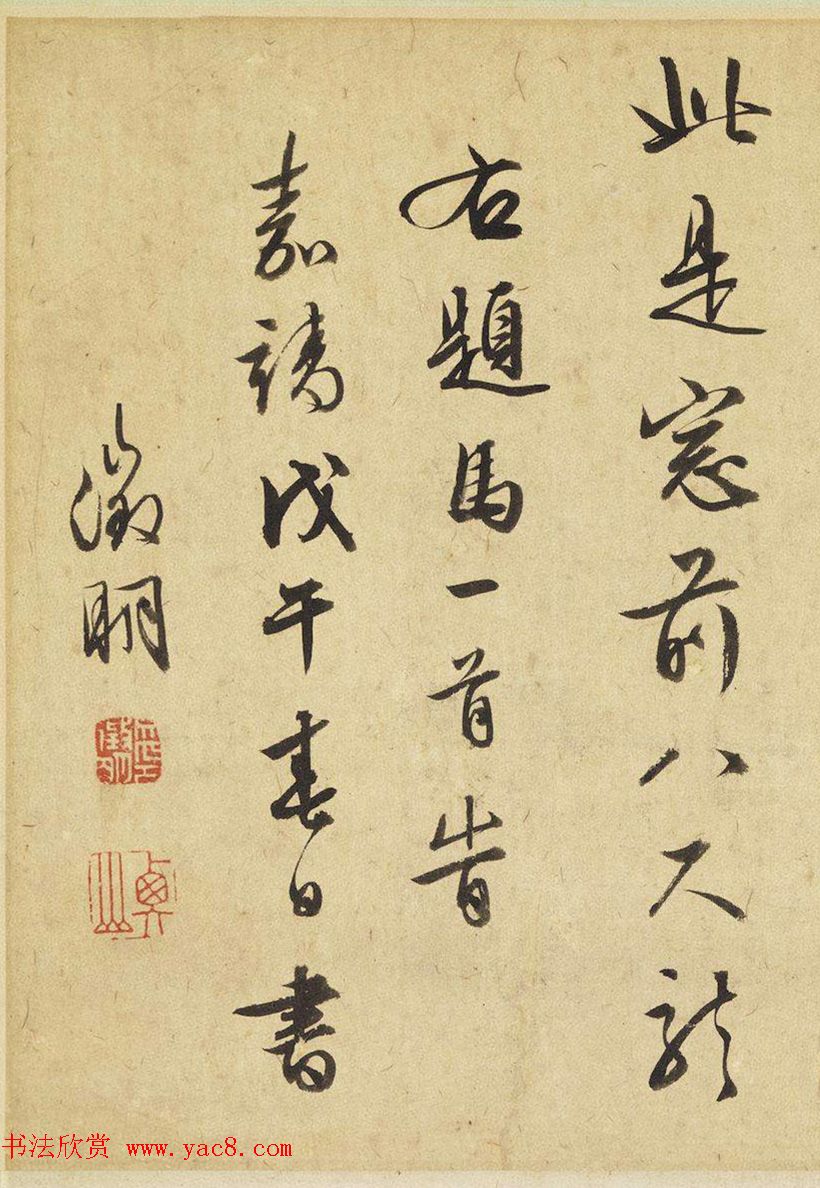 此是窓前八尺龍
右題馬一首旹
嘉靖戊午春日書
徵明
书法欣赏 www.yac8.com